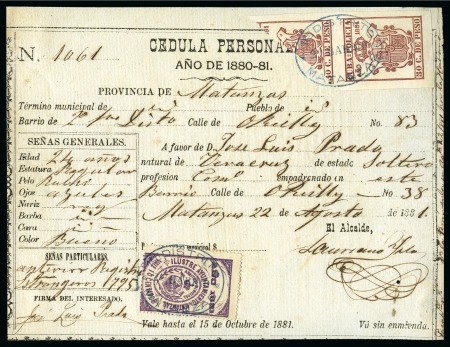 N. 1061
CEDULA PERSONAL
AÑO DE 1880-81.
50 C. DE PESO
50 C. DE PESO
PROVINCIA DE Matanzas
Término municipal de Pueblo de
Barrio de 2º Disto Calle de OReilly No. 83
SEÑAS GENERALES.
Edad 24 años
Estatura Regular
Pelo Rubio
Ojos azules
Nariz
Barba
Cara
Color Bueno
SEÑAS PARTICULARES.
anterior Registro
Estrangeros
FIRMA DEL INTERESADO.
José Luis Prado
A favor de D. Jose Luis Prado
natural de Veracruz de estado Soltero
profesion Como. empadronado en este
Barrio Calle de OReilly No 38
Matanzas 22 Agosto de 1881.
El Alcalde,
Laureano
Vale hasta el 15 de Octubre de 1881.
Vá sin enmienda.